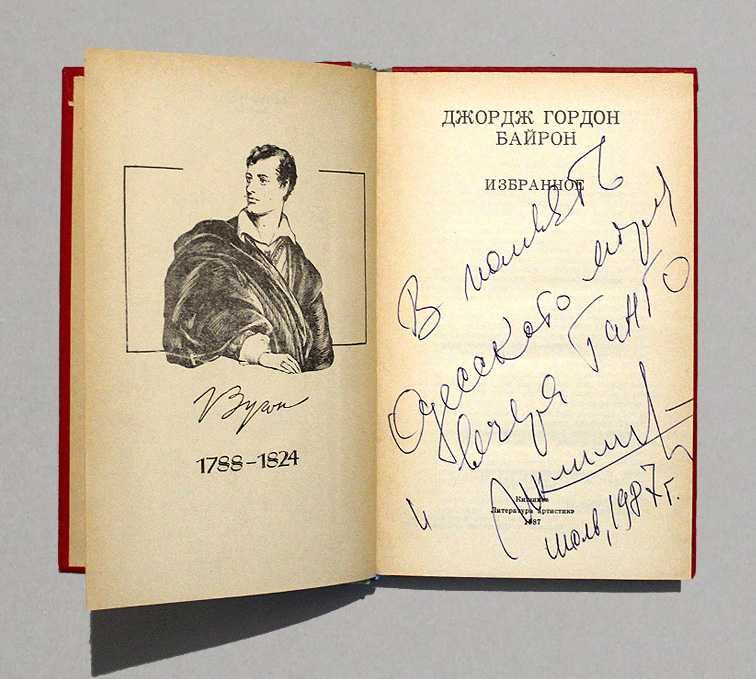 Byron
1788–1824
ДЖОРДЖ ГОРДОН
БАЙРОН
ИЗБРАННОЕ
В память
Одесского моря
и вечера Танго
июль, 1987 г.
Кишинев
Литература артистикэ
1987